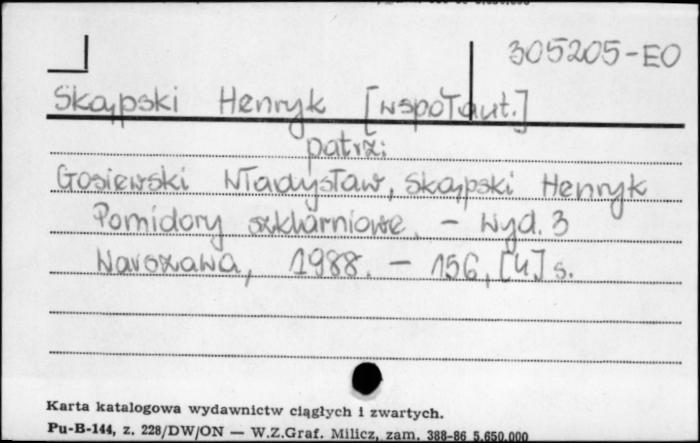 305205-EO
Skąpski Henryk [współaut.]
patrz:
Gosiewski Władysław, Skąpski Henryk
Pomidory szklarniowe. - Wyd. 3
Warszawa, 1988. - 156, [4] s.
Karta katalogowa wydawnictw ciągłych i zwartych.
Pu-B-144, z. 228/DW/ON — W.Z.Graf. Milicz, zam. 388-86 5.650.000